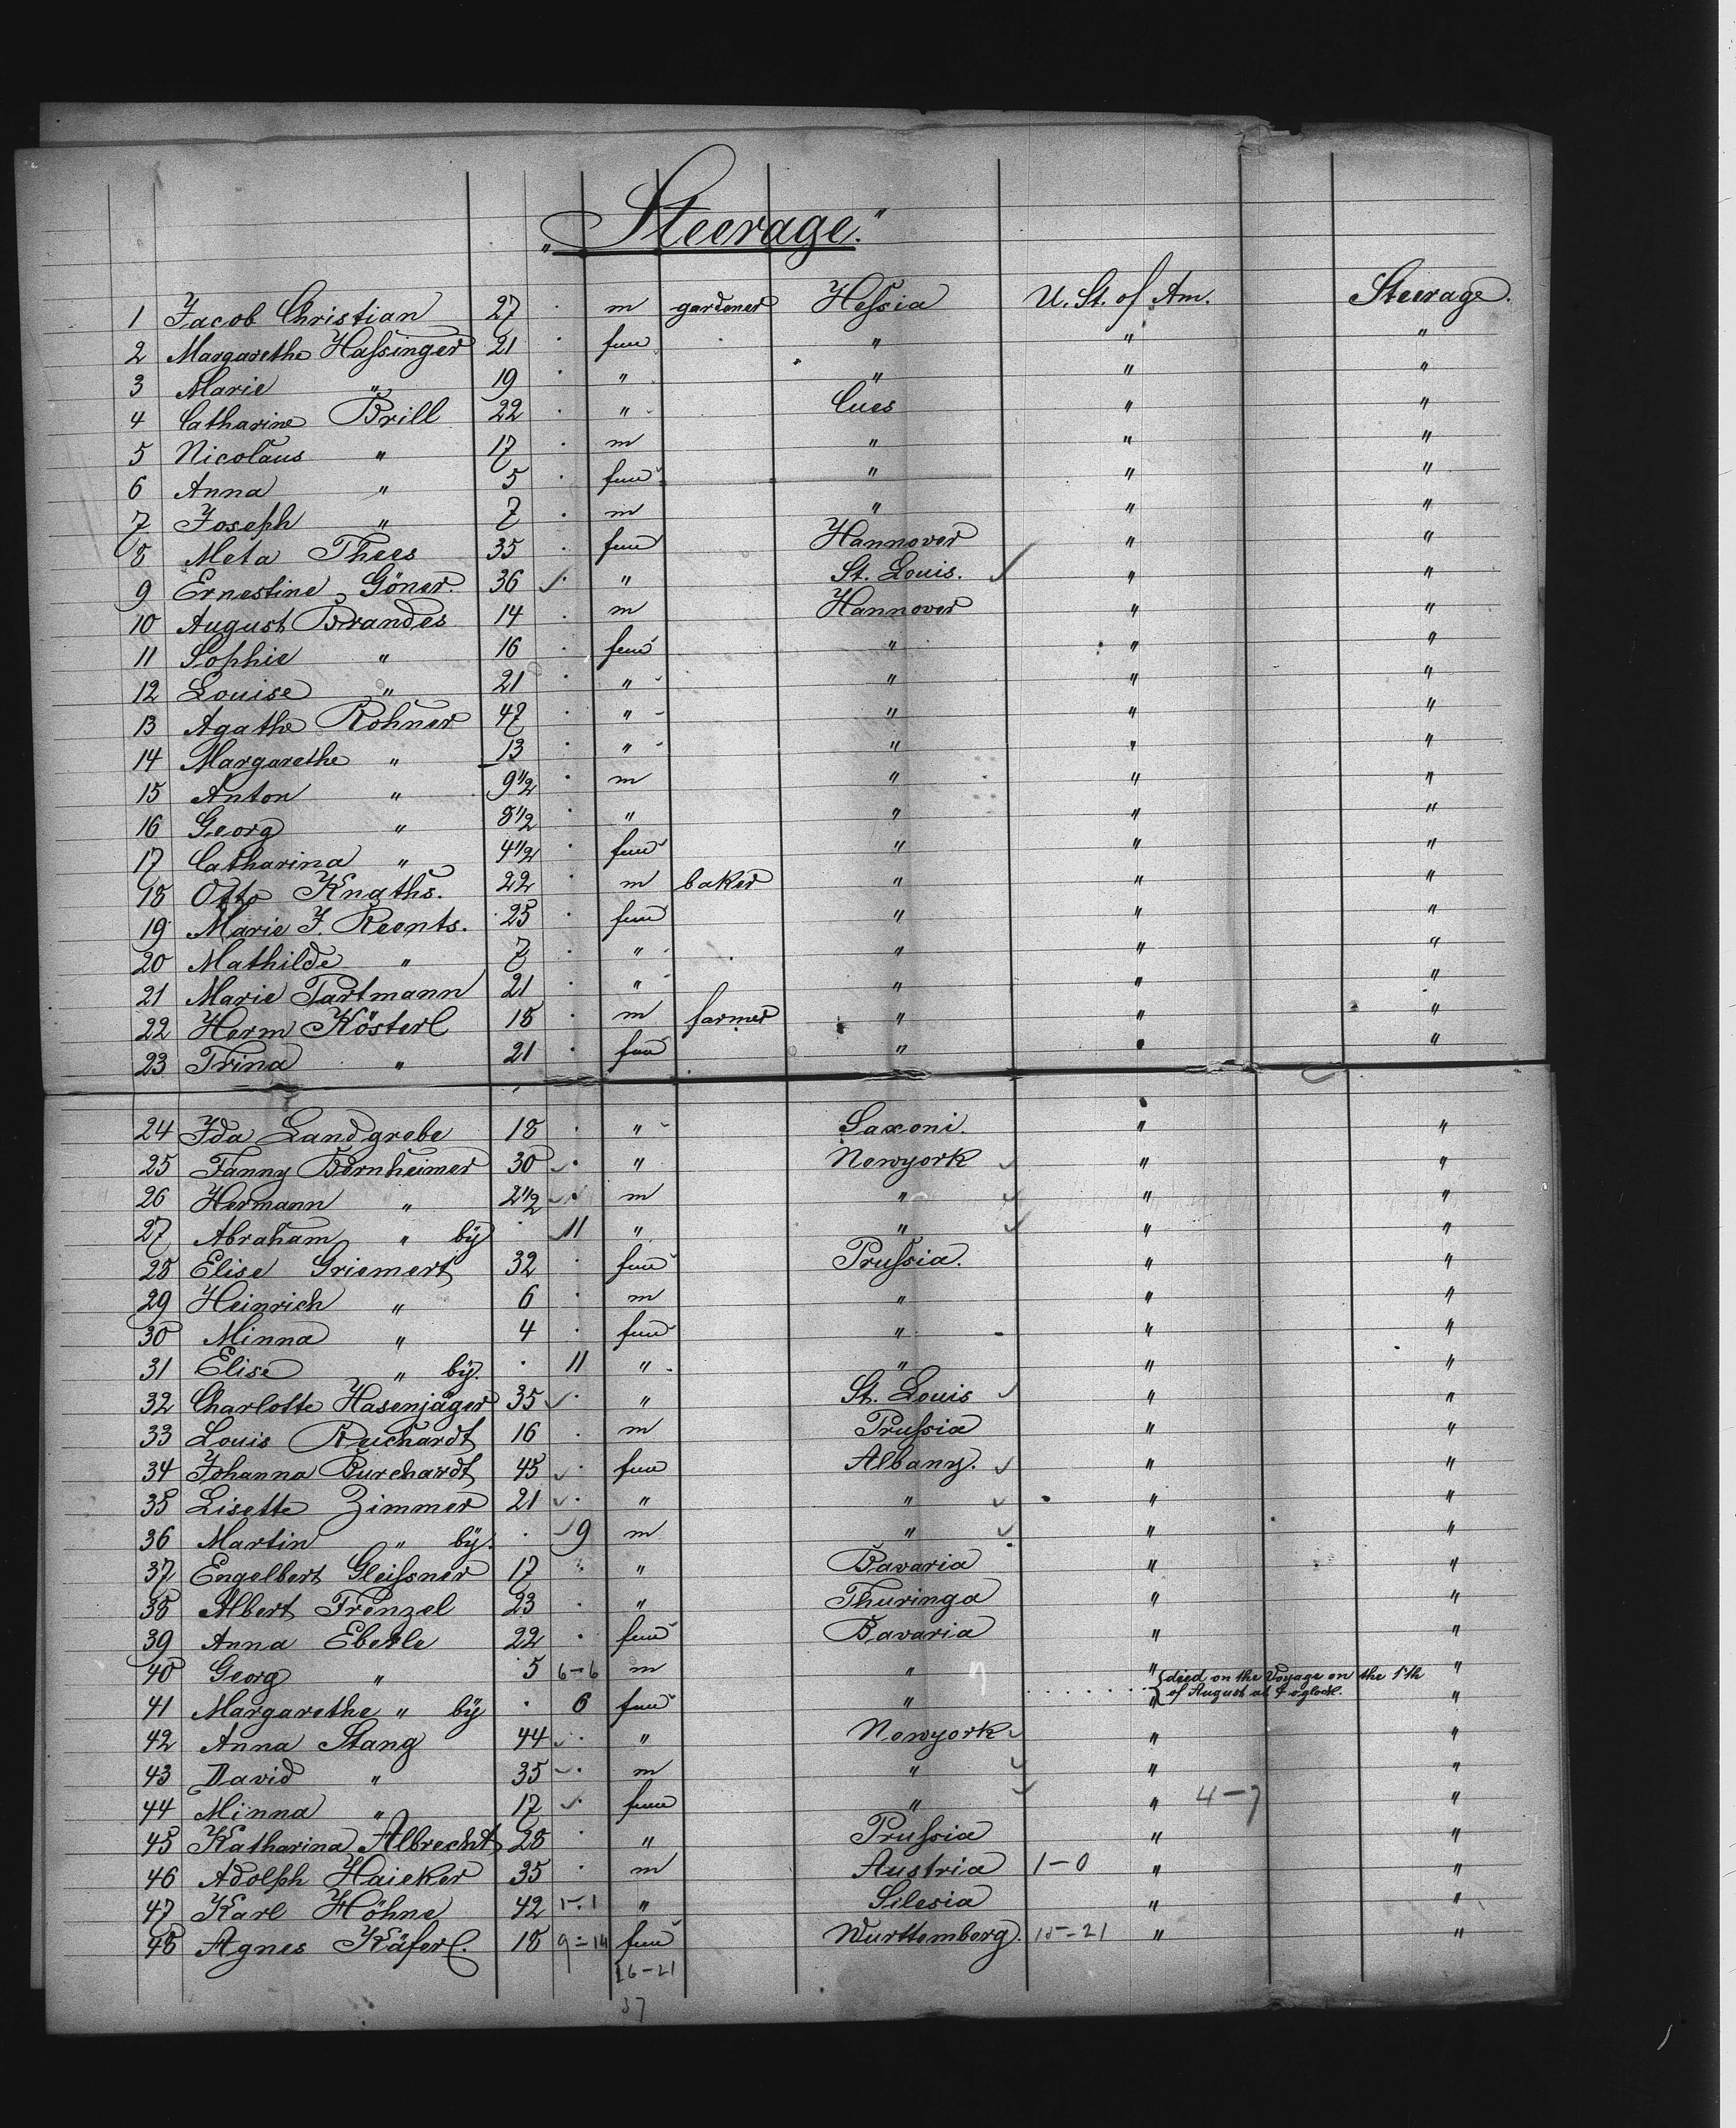 „Steerage."
1 Jacob Christian 27 · m gardener Hessia U. St. of Am. Steerage.
2 Margarethe Hassinger 21 · fem " " "
3 Marie " 19 · " " " "
4 Catharine Brill 22 · " Cues " "
5 Nicolaus " 17 · m " " "
6 Anna " 5 · fem " " "
7 Joseph " 7 · m " " "
8 Meta Thees 35 · fem Hannover " "
9 Ernestine Göner. 36 ✓· " St. Louis. ✓ " "
10 August Brandes 14 · m Hannover " "
11 Sophie " 16 · fem " " "
12 Louise " 21 · " " " "
13 Agathe Rohner 47 · " " " "
14 Margarethe " 13 · " " " "
15 Anton " 9 1/2 · m " " "
16 Georg " 8 1/2 " " " "
17 Catharina " 4 1/2 · fem " " "
18 Otto Knaths. 22 · m baker " " "
19 Marie J. Reents. 25 · fem " " "
20 Mathilde " 7 · " " " "
21 Marie Partmann 21 · " " " "
22 Herm Kösterl 18 · m farmer " " "
23 Trina " 21 · fem " " "
24 Ida Landgrebe 18 · " Saxoni. " "
25 Fanny Bernheimer 30 ✓· " Newyork ✓ " "
26 Hermann " 2 1/2 ✓· m " ✓ " "
27 Abraham " by · 11 " " ✓ " "
28 Elise Griemert 32 · fem Prussia. " "
29 Heinrich " 6 · m " " "
30 Minna " 4 · fem " " "
31 Elise " by. · 11 " " " "
32 Charlotte Hasenjäger 35 ✓· " St. Louis ✓ " "
33 Louis Ruchardt 16 · m Prussia " "
34 Johanna Burchardt 45 ✓· fem Albany. ✓ " "
35 Lisette Zimmer 21 ✓· " " ✓ " "
36 Martin " by. · ✓9 m " ✓ " "
37 Engelbert Gleissner 17 · " Bavaria " "
38 Albert Frenzel 23 · " Thuringa " "
39 Anna Eberle 22 · fem Bavaria " "
40 Georg " 5 6-6 m " " "
died on the Voyage on the
of August at 4 oglock.
41 Margarethe " by · 6 fem " " "
42 Anna Stang 44 ✓· " Newyork ✓ " "
43 David " 35 ✓· m " ✓ " "
44 Minna " 17 ✓· fem " ✓ " 4-7 "
45 Katharina Albrecht 28 · " Prussia " "
46 Adolph Haieker 35 · m Austria 1-0 " "
47 Karl Höhne 42 1-1 " Silesia " "
48 Agnes Käferl. 18 9-14 fem Wurttemberg. 15-21 " "
16-21
37